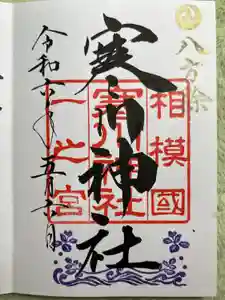 八方除
相模國
寒川神社
寒川神社
一之宮
令和六年五月六日